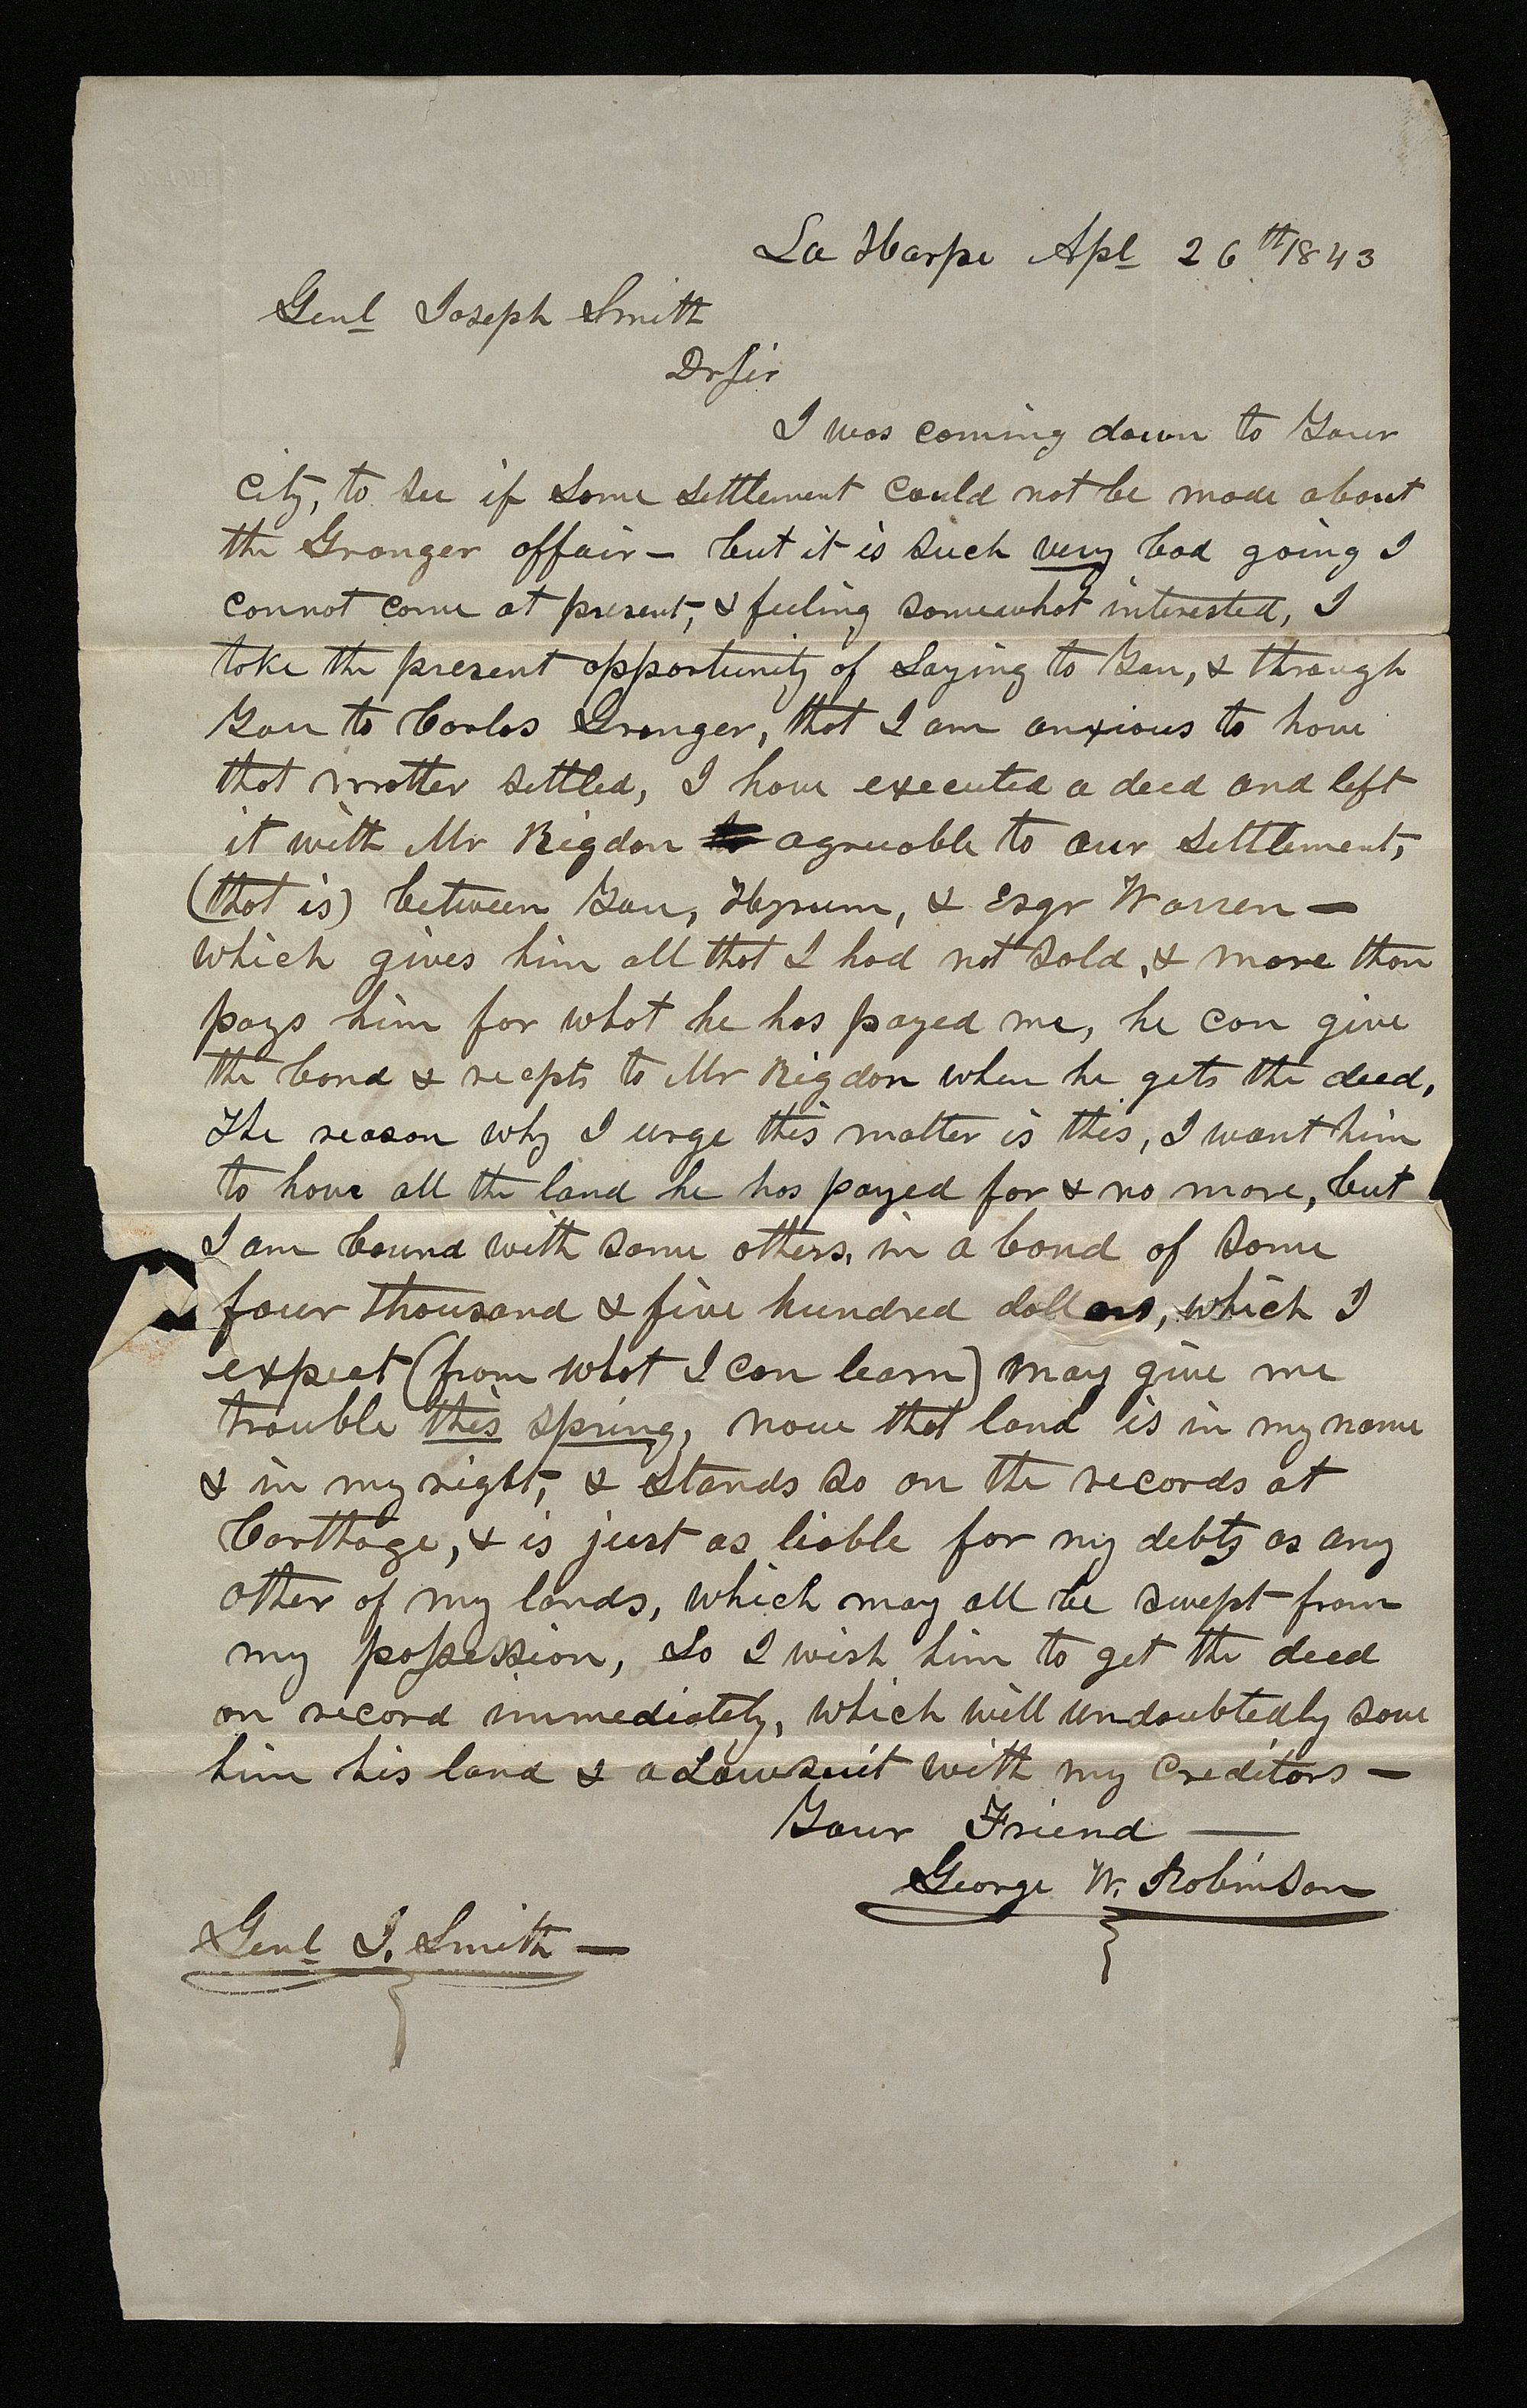 La Harpe Apl 26th 1843
Genl Joseph Smith
Dr Sir
I was coming down to Your
City, to see if some settlement could not be made about
the Granger affair— but it is such very bad going I
cannot come at present, & feeling somewhat interested, I
take the present opportunity of saying to You, & through
You to Carlos Granger, that I am anxious to have
that matter settled, I have executed a deed and left
it with Mr Rigdon agreeable to our settlement,
(that is) between You, Hyrum, & Esqr Warren—
which gives him all that I had not sold, & more than
pays him for what he has payed me, he can give
the bond & recepts to Mr Rigdon when he gets the deed,
The reason why I urge this matter is this, I want him
to have all the land he has payed for & no more, but
I am bound with some others, in a bond of some
four thousand & five hundred dollars, which I
expect (from what I can learn) may give me
trouble this spring, now that land is in my name
& in my right, & stands so on the records at
Carthage, & is just as liable for my debts as any
other of my lands, which may all be swept from
my possession, So I wish him to get the deed
on record immediately, which will undoubtedly save
him his land & a Lawsuit with my Creditors—
Your Friend —
George W. Robinson
Genl J. Smith —